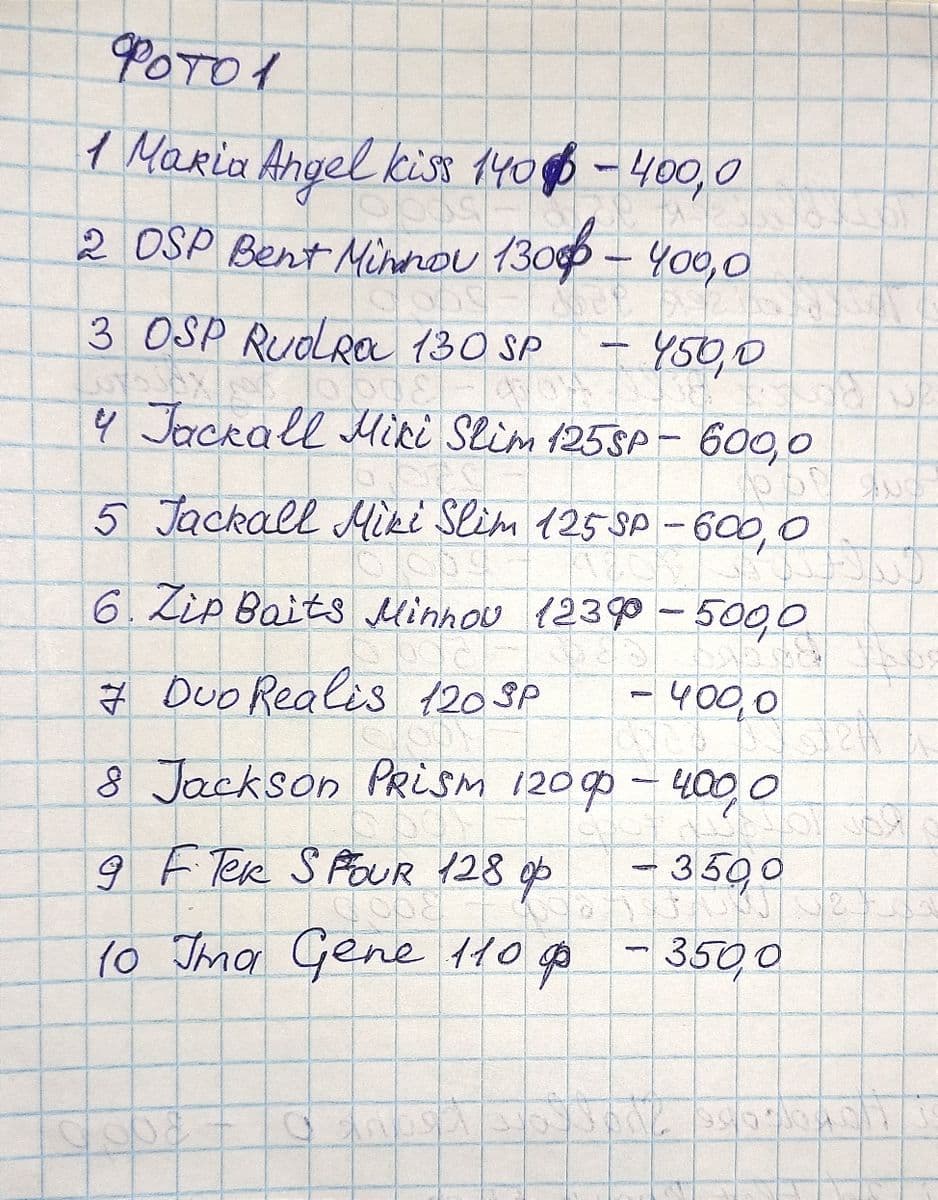 ФОТО 1
1 Maria Angel Kiss 140ф – 400,0
2 OSP Bent Minnov 130ф – 400,0
3 OSP Rudra 130 SP – 450,0
4 Jackall Miki Slim 125SP – 600,0
5 Jackall Miki Slim 125 SP – 600,0
6. Zip Baits Minnov 123ф – 500,0
7 Duo Realis 120 SP – 400,0
8 Jackson Prism 120ф – 400,0
9 F.Tek S Four 128 ф – 350,0
10 Ima Gene 110 ф – 350,0